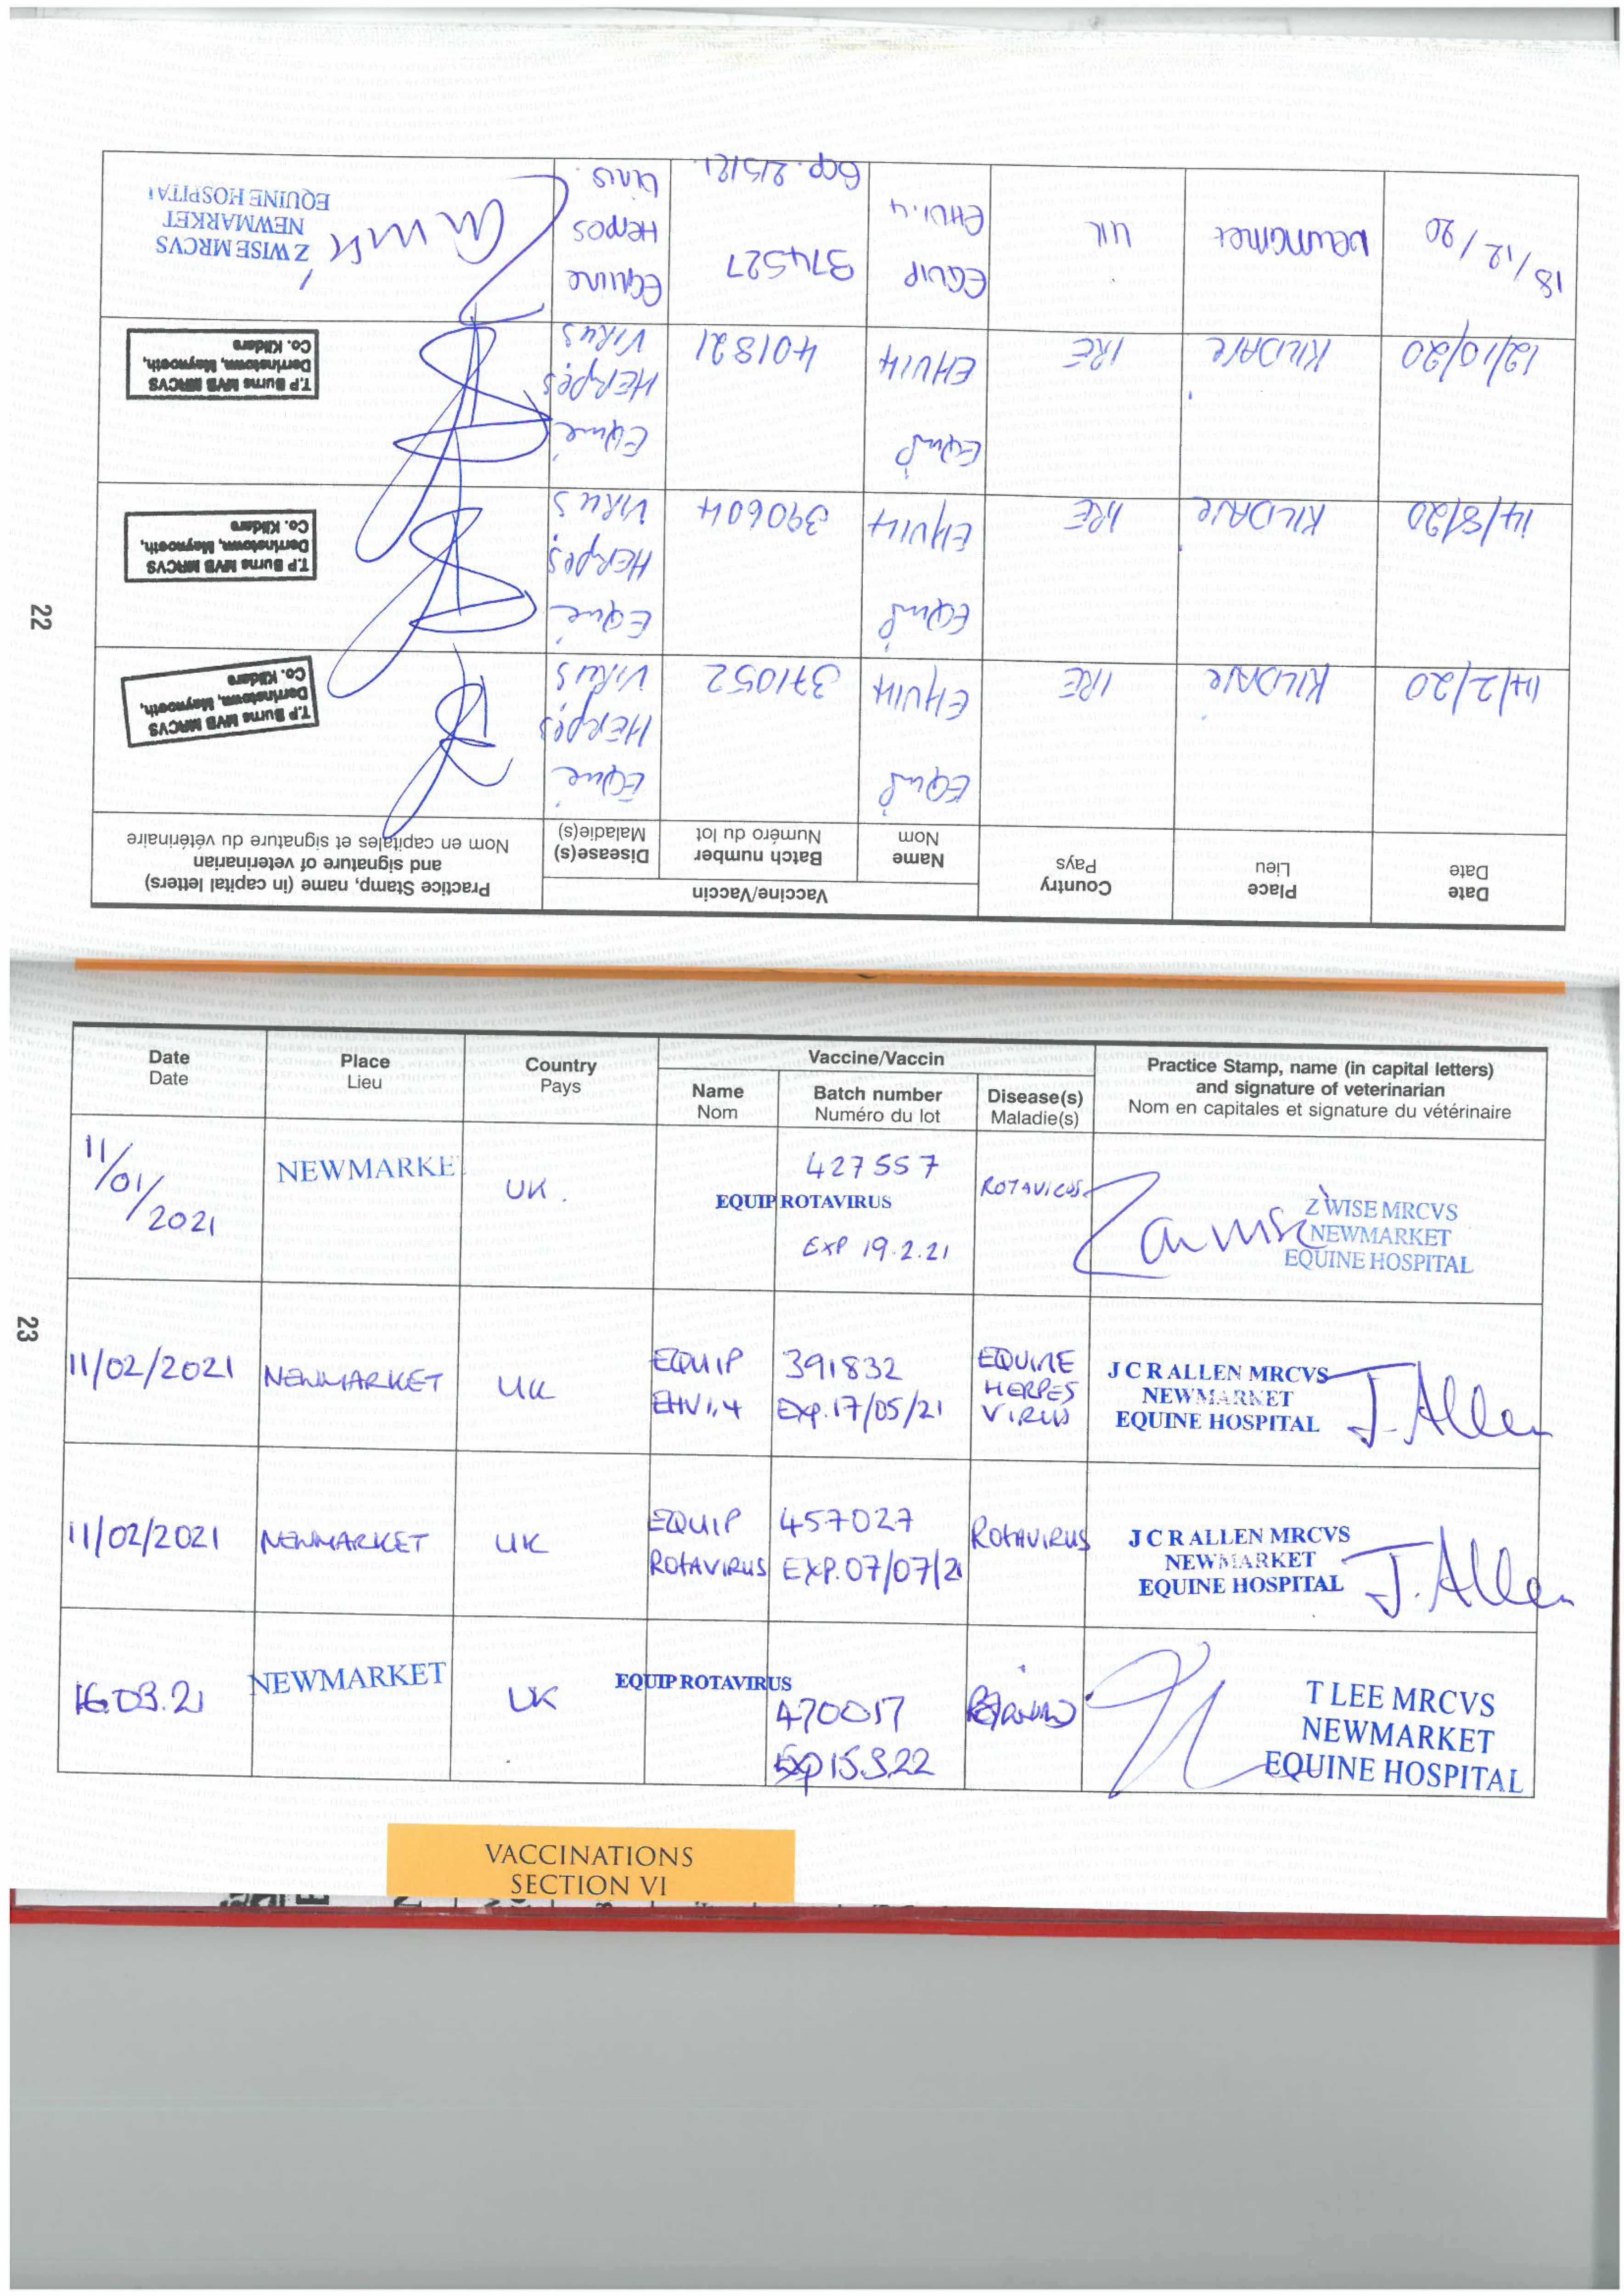 22
Date
Date
Place
Lieu
Country
Pays
Vaccine/Vaccin
Name
Nom
Batch number
Numéro du lot
Disease(s)
Maladie(s)
Practice Stamp, name (in capital letters)
and signature of veterinarian
Nom en capitales et signature du vétérinaire
14/2/20
KILDARE
IRE
EQUIP
EHV14
371052
Equine
HERPES
VIRUS
T.P Burns MVB MRCVS
Derrinstown, Maynooth,
Co. Kildare
14/8/20
KILDARE
IRE
EQUIP
EHV14
390604
Equine
HERPES
VIRUS
T.P Burns MVB MRCVS
Derrinstown, Maynooth,
Co. Kildare
12/10/20
KILDARE
IRE
EQUIP
EHV14
401821
Equine
HERPES
VIRUS
T.P Burns MVB MRCVS
Derrinstown, Maynooth,
Co. Kildare
18/12/20
Newmarket
UK
EQUIP
EHV1.4
374527
Exp. 2/5/21.
EQUINE
HERPES
Virus.
Z WISE MRCVS
NEWMARKET
EQUINE HOSPITAL
23
Date
Date
Place
Lieu
Country
Pays
Vaccine/Vaccin
Name
Nom
Batch number
Numéro du lot
Disease(s)
Maladie(s)
Practice Stamp, name (in capital letters)
and signature of veterinarian
Nom en capitales et signature du vétérinaire
11/01/2021
NEWMARKE
UK.
EQUIP ROTAVIRUS
427557
EXP 19.2.21
ROTAVIRUS
Z WISE MRCVS
NEWMARKET
EQUINE HOSPITAL
11/02/2021
NEWMARKET
UK
EQUIP
EHV1,4
391832
Exp. 17/05/21
EQUINE
HERPES
VIRUS
J C R ALLEN MRCVS
NEWMARKET
EQUINE HOSPITAL
J. Allen
11/02/2021
NEWMARKET
UK
EQUIP
ROTAVIRUS
457027
EXP. 07/07/21
ROTAVIRUS
J C R ALLEN MRCVS
NEWMARKET
EQUINE HOSPITAL
J. Allen
16.03.21
NEWMARKET
UK
EQUIP ROTAVIRUS
470017
Exp 15.3.22
T LEE MRCVS
NEWMARKET
EQUINE HOSPITAL
VACCINATIONS
SECTION VI